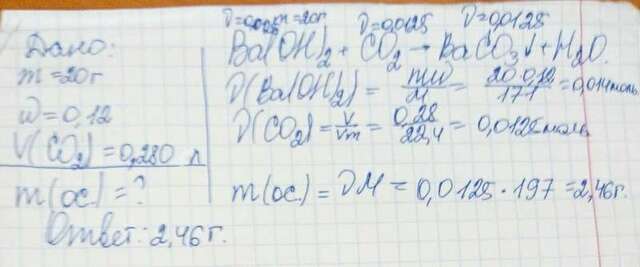 Дано:
m = 20 г
w = 0,12
V(CO₂) = 0,280 л
m(ос.) = ?
m = 20г ν = 0,0125 ν = 0,0125
Ba(OH)₂ + CO₂ → BaCO₃↓ + H₂O.
ν(Ba(OH)₂) = mw/M = 20·0,12/171 = 0,014моль
ν(CO₂) = V/Vm = 0,28/22,4 = 0,0125моль
m(ос.) = νM = 0,0125·197 = 2,46г.
Ответ: 2,46г.